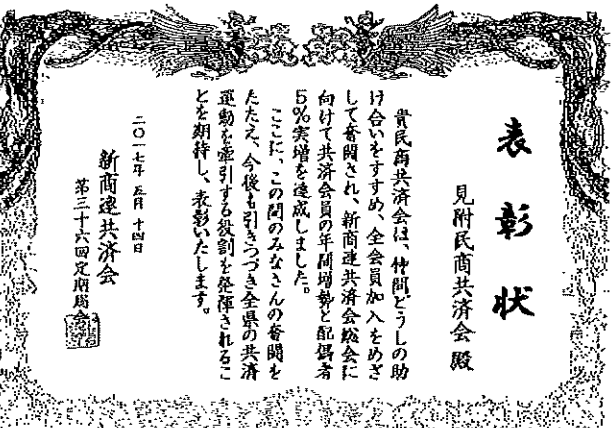 表彰状
見附民商共済会殿
貴民商共済会は、仲間どうしの助
け合いをすすめ、全会員加入をめざ
して奮闘され、新商連共済会総会に
向けて共済会員の年間増勢と配偶者
5%実増を達成しました。
ここに、この間のみなさんの奮闘を
たたえ、今後も引きつづき全県の共済
運動を牽引する役割を発揮されるこ
とを期待し、表彰いたします。
二〇一七年 五月 十四日
新商連共済会
第三十六回定期総会